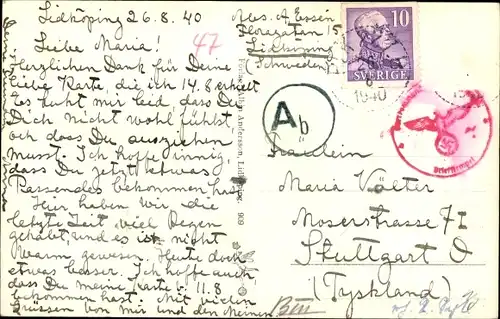 Lidköping 26.8.40
Liebe Maria!
Herzlichen Dank für Deine
liebe Karte, die ich 14.8 erhielt
Es tuht mir leid, dass Du
Dich nicht wohl fühlst
och dass Du ausziehen
musst. Ich hoffe innig,
dass Du jetzt etwas
Passendes bekommen hast.
Hier haben wir die
letzte Zeit viel Regen
gehabt, und es ist nicht
warm gewesen. Heute doch
etwas besser. Ich hoffe auch,
dass Du meine Karte 6. 11.8
bekommen hast. Mit vielen
Grüssen von mir und den Meinen
47
Abs. A. Essén
Floragatan 15
Lidköping
Schweden
10
SVERIGE
1940
Ab
Fräulein
Maria Völter
Moserstrasse 71
Stuttgart O
(Tyskland)
Briefstempel
909
BIII